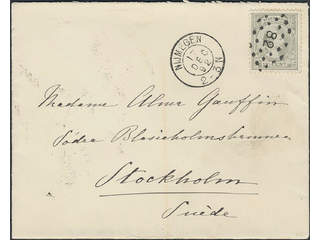 NIJMEGEN
82
Madame Alma Gauffin
Södra Blasieholmshamnen
Stockholm
Suède